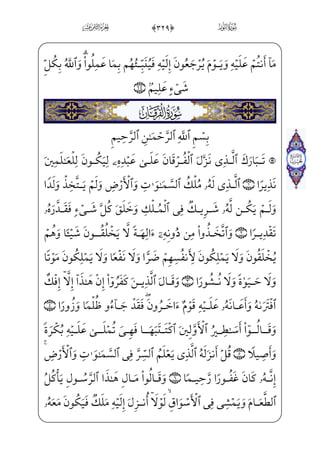 سُورَةُ النُّورِ ﴿٣٢٩﴾ الجُزْءُ الثَّامِنَ عَشَرَ
مَآ أَنتُمْ عَلَيْهِ وَيَوْمَ يُرْجَعُونَ إِلَيْهِ فَيُنَبِّئُهُم بِمَا عَمِلُوا۟ۗ وَٱللَّهُ بِكُلِّ
شَىْءٍ عَلِيمٌۢ ۝٦٤
سُورَةُ الْفُرْقَانِ
بِسْمِ ٱللَّهِ ٱلرَّحْمَٰنِ ٱلرَّحِيمِ
۞ تَبَارَكَ ٱلَّذِى نَزَّلَ ٱلْفُرْقَانَ عَلَىٰ عَبْدِهِۦ لِيَكُونَ لِلْعَٰلَمِينَ
نَذِيرًا ۝١ ٱلَّذِى لَهُۥ مُلْكُ ٱلسَّمَٰوَٰتِ وَٱلْأَرْضِ وَلَمْ يَتَّخِذْ وَلَدًا
وَلَمْ يَكُن لَّهُۥ شَرِيكٌ فِى ٱلْمُلْكِ وَخَلَقَ كُلَّ شَىْءٍ فَقَدَّرَهُۥ
تَقْدِيرًا ۝٢ وَٱتَّخَذُوا۟ مِن دُونِهِۦٓ ءَالِهَةً لَّا يَخْلُقُونَ شَيْـًٔا وَهُمْ
يُخْلَقُونَ وَلَا يَمْلِكُونَ لِأَنفُسِهِمْ ضَرًّا وَلَا نَفْعًا وَلَا يَمْلِكُونَ مَوْتًا
وَلَا حَيَوٰةً وَلَا نُشُورًا ۝٣ وَقَالَ ٱلَّذِينَ كَفَرُوٓا۟ إِنْ هَٰذَآ إِلَّآ إِفْكٌ
ٱفْتَرَىٰهُ وَأَعَانَهُۥ عَلَيْهِ قَوْمٌ ءَاخَرُونَۖ فَقَدْ جَآءُو ظُلْمًا وَزُورًا ۝٤
وَقَالُوٓا۟ أَسَٰطِيرُ ٱلْأَوَّلِينَ ٱكْتَتَبَهَا فَهِىَ تُمْلَىٰ عَلَيْهِ بُكْرَةً
وَأَصِيلًا ۝٥ قُلْ أَنزَلَهُ ٱلَّذِى يَعْلَمُ ٱلسِّرَّ فِى ٱلسَّمَٰوَٰتِ وَٱلْأَرْضِۚ
إِنَّهُۥ كَانَ غَفُورًا رَّحِيمًا ۝٦ وَقَالُوا۟ مَالِ هَٰذَا ٱلرَّسُولِ يَأْكُلُ
ٱلطَّعَامَ وَيَمْشِى فِى ٱلْأَسْوَاقِۙ لَوْلَآ أُنزِلَ إِلَيْهِ مَلَكٌ فَيَكُونَ مَعَهُۥ